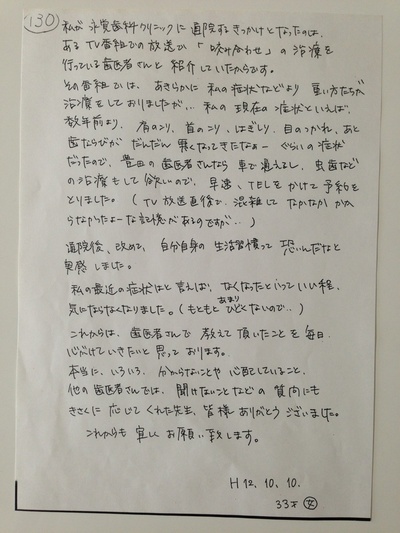 130
私が永覚歯科クリニックに通院するきっかけとなったのは、
あるTV番組での放送で「咬み合わせ」の治療を
行っている歯医者さんと紹介していたからです。
その番組では、あきらかに私の症状などより重い方たちが
治療をしておりましたが… 私の現在の症状といえば、
数年前より、肩のこり、首のこり、はぎしり、目のつかれ、あと
歯ならびがだんだん悪くなってきたなぁーぐらいの症状
だったので、豊田の歯医者さんなら車で通えるし、虫歯など
の治療もして欲しいので、早速、TELをかけて予約を
とりました。(TV放送直後で、混雑してなかなかかか
らなかったよーな記憶があるのですが‥)
通院後、改めて、自分自身の生活習慣って恐いんだなと
実感しました。
私の最近の症状はと言えば、なくなったっていっていい程、
気にならなくなりました。(もともとあまりひどくないので‥)
これからは、歯医者さんで教えて頂いたことを毎日、
心がけていきたいと思っております。
本当に、いろいろ、分からないことや心配していること、
他の歯医者さんでは、聞けないことなどの質問にも
きさくに応じてくれた先生、皆様ありがとうございました。
これからも宜しくお願い致します。
H12.10.10.
33才 女